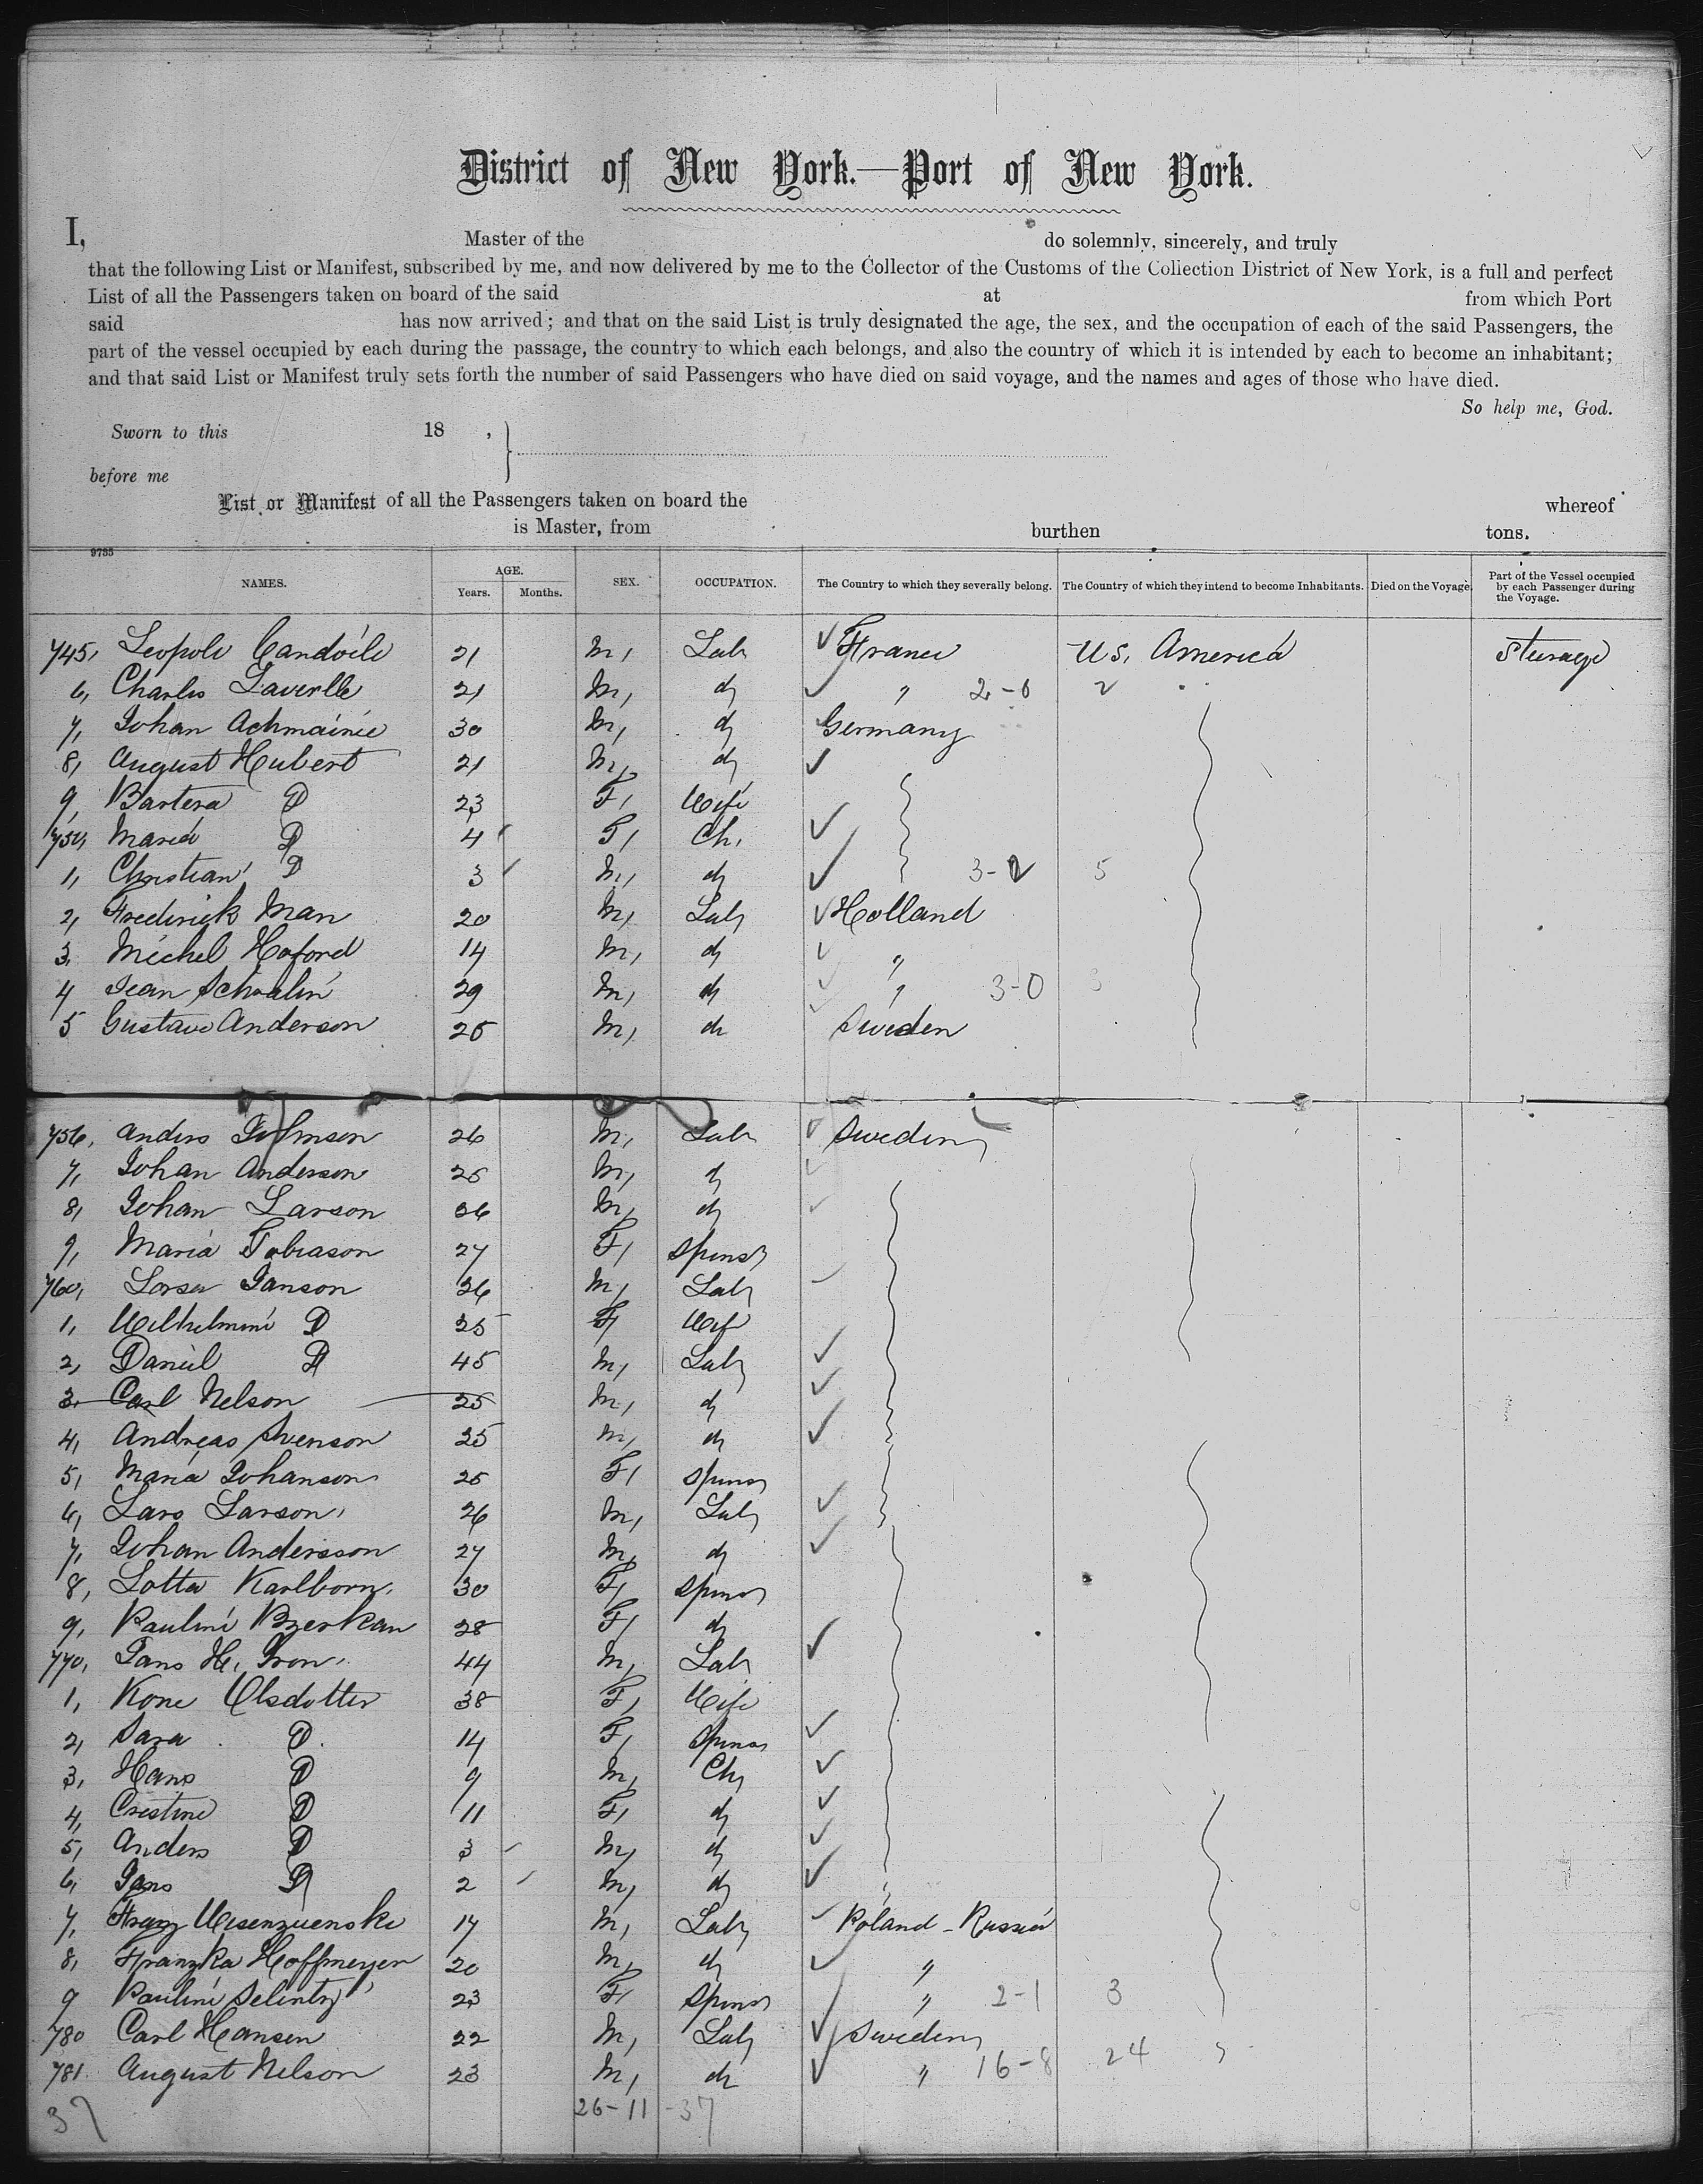 District of New York.—Port of New York.
I, Master of the do solemnly, sincerely, and truly
that the following List or Manifest, subscribed by me, and now delivered by me to the Collector of the Customs of the Collection District of New York, is a full and perfect
List of all the Passengers taken on board of the said at from which Port
said has now arrived; and that on the said List is truly designated the age, the sex, and the occupation of each of the said Passengers, the
part of the vessel occupied by each during the passage, the country to which each belongs, and also the country of which it is intended by each to become an inhabitant;
and that said List or Manifest truly sets forth the number of said Passengers who have died on said voyage, and the names and ages of those who have died.
So help me, God.
Sworn to this 18 ,
before me
List or Manifest of all the Passengers taken on board the whereof
is Master, from burthen tons.
9785
NAMES. AGE. Years. Months. SEX. OCCUPATION. The Country to which they severally belong. The Country of which they intend to become Inhabitants. Died on the Voyage. Part of the Vessel occupied by each Passenger during the Voyage.
745, Leopole 21 M, Lab France U.S. America Steerage
6, Charles Laverlle 21 M, d " 2-0 2
7, Johan 30 M, d Germany
8, August Hubert 21 M, d
9, D 23 F, Wife
750, Maria D 4 F, Ch,
1, Christian D 3 M, d 3-2 5
2, Frederick Man 20 M, Lab Holland
3, Michel Haford 14 M, d "
4 Jean 29 M, d " 3-0 3
5 Gustave Anderson 25 M, d Sweden
756, Anders Johnson 26 M, Lab Sweden
7, Johan Anderson 25 M, d
8, Johan Larson 36 M, d
9, Maria Tobiason 27 F, Spins
760, Janson 36 M, Lab
1, Wilhelmine D 25 F, Wife
2, Daniel D 45 M, Lab
3, Carl Nelson 25 M, d
4, Andreas Svenson 25 M, d
5, Maria Johanson 25 F, Spins
6, Lars Larson 26 M, Lab
7, Johan Andersson 27 M, d
8, Lotta Karlborn 30 F, Spins
9, Pauline 28 F, d
770, H. 44 M, Lab
1, Olsdotter 38 F, Wife
2, Sara D 14 F, Spins
3, Hans D 9 M, Ch,
4, Crestine D 11 F, d
5, Anders D 3 M, d
6, D 2 M, d
7, Franz 17 M, Lab Poland - Russia
8, Franzka Hoffmeyer 20 M, d "
9 Pauline 23 F, Spins " 2-1 3
780 Carl Hansen 22 M, Lab Sweden
781 August Nelson 23 M, d " 16-8 24
37 26-11 -37